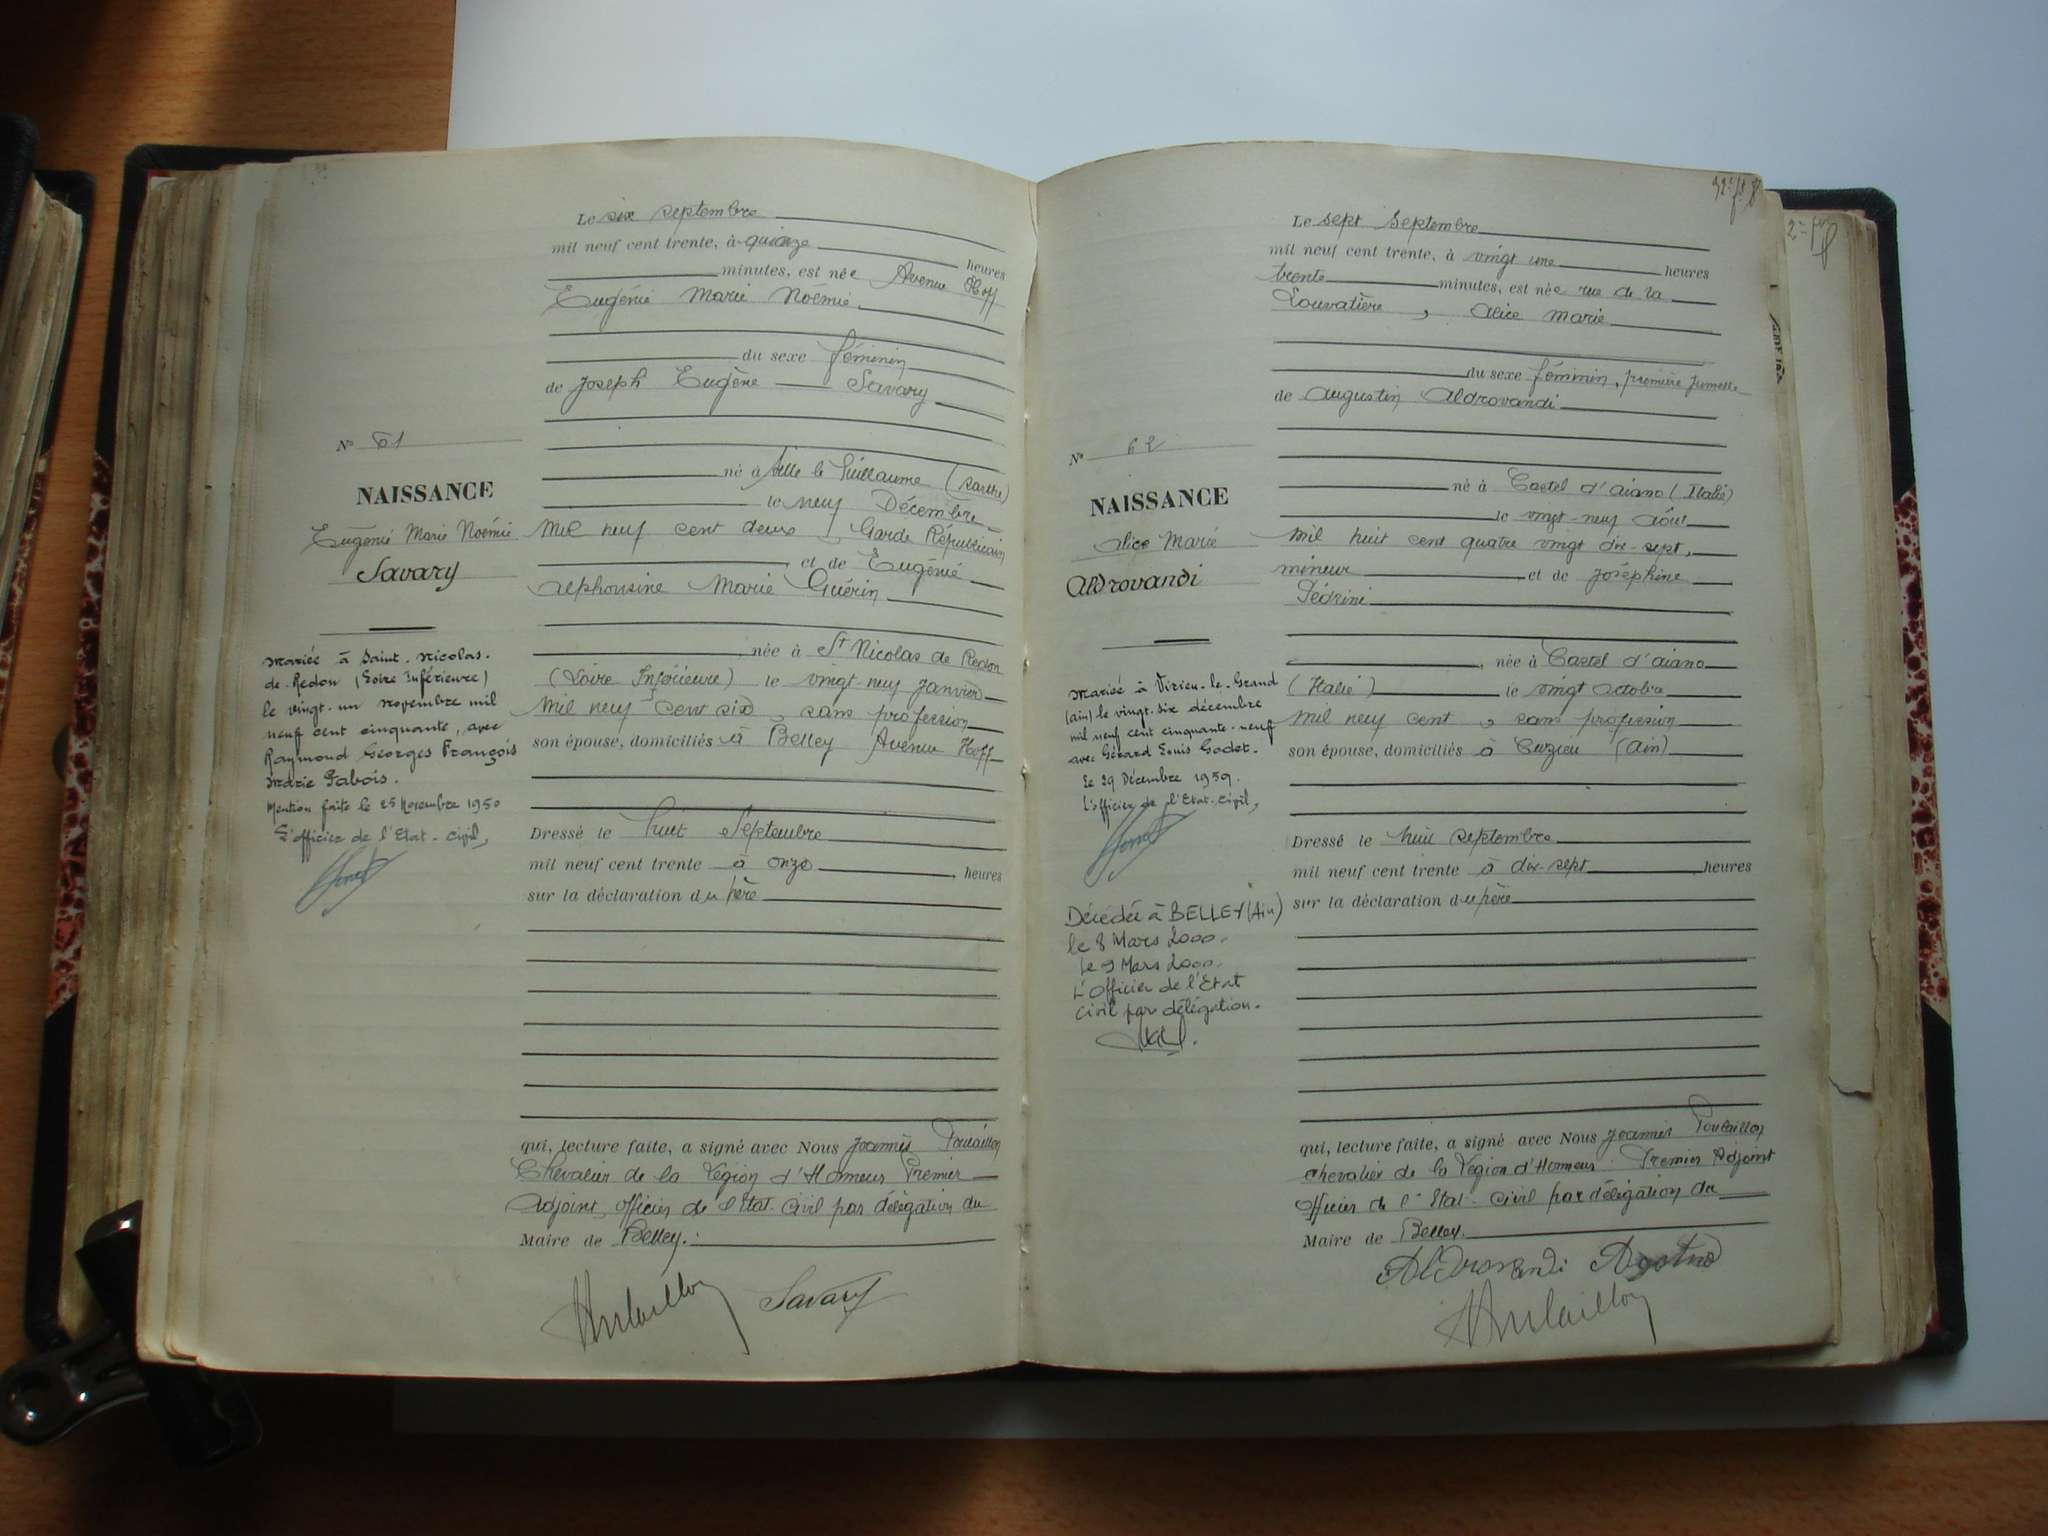 Le six septembre
mil neuf cent trente, à quinze heures
minutes, est née Avenue Hoff
Eugénie Marie Noémie
du sexe féminin
de Joseph Eugène Savary
né à Sille le Guillaume (Sarthe)
le neuf Décembre
mil neuf cent deux, Garde Républicain
et de Eugénie
Alphonsine Marie Guérin
, née à St Nicolas de Redon
(Loire Inférieure) le vingt neuf janvier
mil neuf cent six, sans profession
son épouse, domiciliés à Belley Avenue Hoff
Dressé le huit Septembre
mil neuf cent trente à onze, heures
sur la déclaration du père
qui, lecture faite, a signé avec Nous Joannès
Chevalier de la Légion d'Honneur Premier
Adjoint, officier de l'Etat-Civil par délégation du
Maire de Belley.
Savary
N° 61
NAISSANCE
Eugénie Marie Noémie
Savary
Mariée à Saint-Nicolas-
de-Redon (Loire Inférieure)
le vingt-un novembre mil
neuf cent cinquante, avec
Raymond Georges François
Marie Gabois.
Mention faite le 25 Novembre 1950
L'officier de l'Etat-Civil,
Le sept septembre
mil neuf cent trente, à vingt une heures
trente minutes, est née rue de la
Louvatière, Alice Marie
du sexe féminin, première jumelle
de Augustin Aldrovandi
né à Castel d'Aiano (Italie)
le vingt-neuf Août
mil huit cent quatre vingt dix-sept,
mineur et de Joséphine
Pédrini
, née à Castel d'Aiano
(Italie) le vingt octobre
mil neuf cent, sans profession
son épouse, domiciliés à Cuzieu (Ain)
Dressé le huit septembre
mil neuf cent trente à dix-sept heures
sur la déclaration du père
qui, lecture faite, a signé avec Nous Joannès
Chevalier de la Légion d'Honneur Premier Adjoint
Officier de l'Etat-Civil par délégation du
Maire de Belley.
Aldrovandi Agostino
N° 62
NAISSANCE
Alice Marie
Aldrovandi
Mariée à Virieu-le-Grand
(Ain) le vingt-six décembre
mil neuf cent cinquante-neuf
avec Gérard Louis Godet.
Le 29 Décembre 1959.
L'officier de l'Etat-Civil,
Décédée à BELLEY (Ain)
le 8 Mars 2000.
Le 9 Mars 2000.
L'Officier de l'Etat
Civil par délégation.